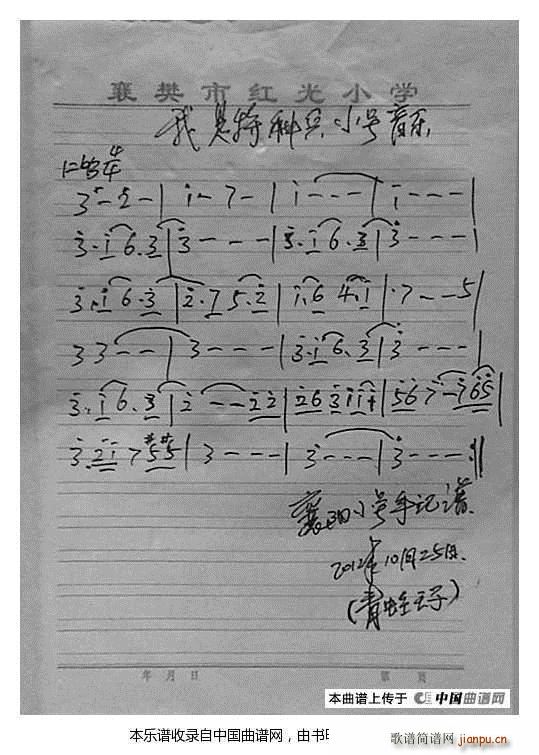 襄樊市红光小学
我是特科兵小号音乐
1=bB 4/4
3 - 5 - | i - 7 - | i - - - | i - - - |
3 · i 6 · 3 | 3 - - - | 3 · i 6 · 3 | 3 - - - |
3 · i 6 · 3 | 2 · 7 5 · 2 | i · 6 4 · i | · 7 - - 5 |
3 3 - - | 3 - - - | 3 · i 6 · 3 | 3 - - - |
3 · i 6 · 3 | 2 - - 2 2 | 2 6 3 i i i | 5 6 7 - 7 6 5 |
3 · 2 i 7 #5 #5 | 3 - - - | 3 - - - | 3 - - - :||
襄阳小号手记谱
2012年10月25日.
(青蛙王子)
年 月 日 第 页
本曲谱上传于 中国曲谱网
本乐谱收录自中国曲谱网，由书
歌谱简谱网
jianpu.cn